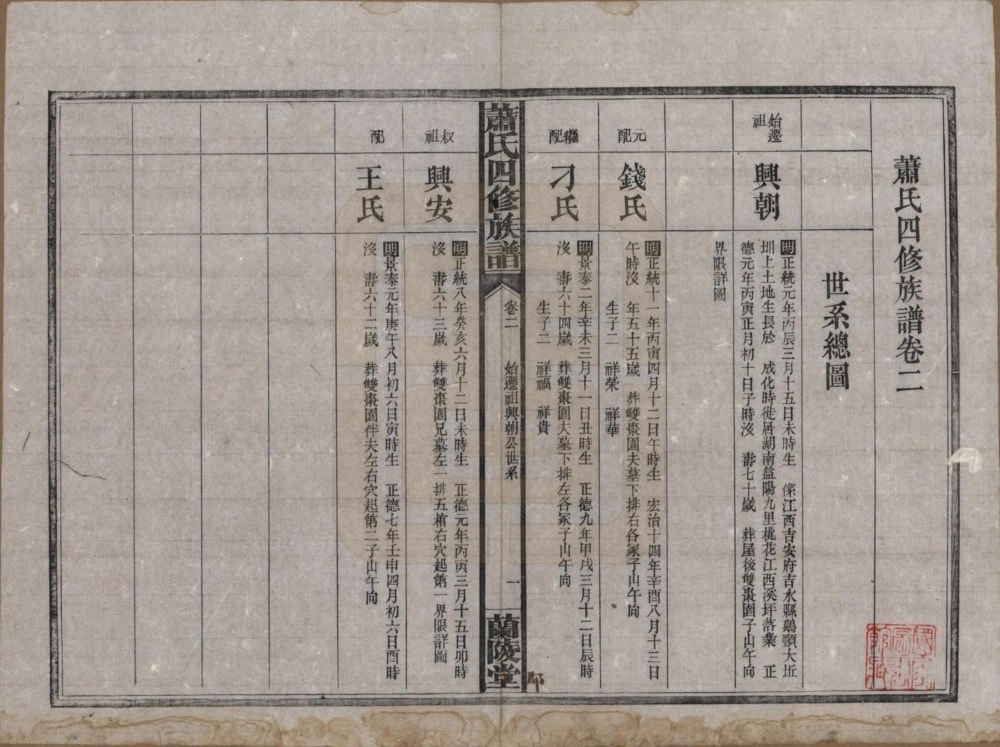 蕭氏四修族譜卷二
世系總圖
始遷祖
興朝
明正統元年丙辰三月十五日未時生 係江西吉安府吉水縣鵝頸大坵
圳上土地生長於 成化時徙居湖南益陽九里桃花江西溪坪落業 正
德元年丙寅正月初十日子時沒 壽七十歲 葬屋後雙棗園子山午向
界限詳圖
元配
錢氏
明正統十一年丙寅四月十二日午時生 宏治十四年辛酉八月十三日
午時沒 年五十五歲 葬雙棗園夫墓下排右各冢子山午向
生子二 祥榮 祥華
繼配
刁氏
明景泰二年辛未三月十一日丑時生 正德九年甲戌三月十二日辰時
沒 壽六十四歲 葬雙棗園夫墓下排左各冢子山午向
生子二 祥福 祥貴
蕭氏四修族譜
卷二
始遷祖興朝公世系
一
蘭陵堂
叔祖
興安
明正統八年癸亥六月十二日未時生 正德元年丙寅三月十五日卯時
沒 壽六十三歲 葬雙棗園兄墓左一排五棺右穴起第一界限詳圖
配
王氏
明景泰元年庚午八月初六日寅時生 正德七年壬申四月初六日酉時
沒 壽六十二歲 葬雙棗園伴夫左右穴起第二子山午向